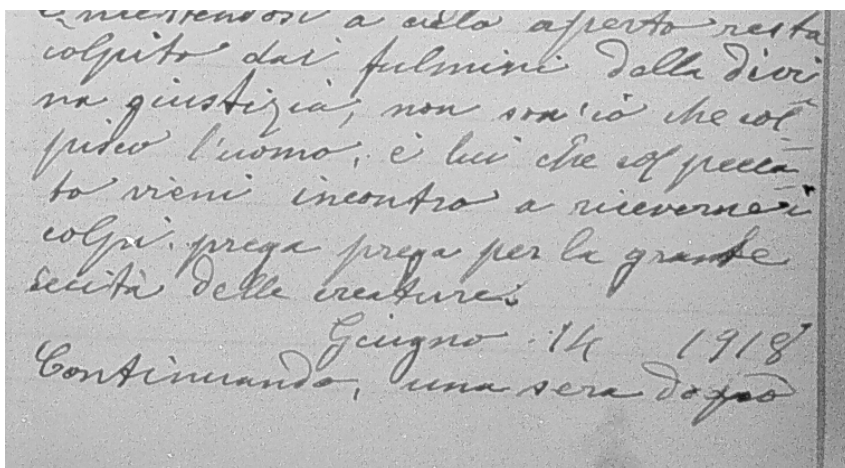 e mettendosi a cielo aperto resta
colpito dai fulmini della divi
na giustizia, non son'io che col=
pisco l'uomo, è lui che col pecca=
to vieni incontro a riceverne i
colpi. prega prega per la grante
cecità delle creature.
Giugno 14 1918
Continuando, una sera dopo